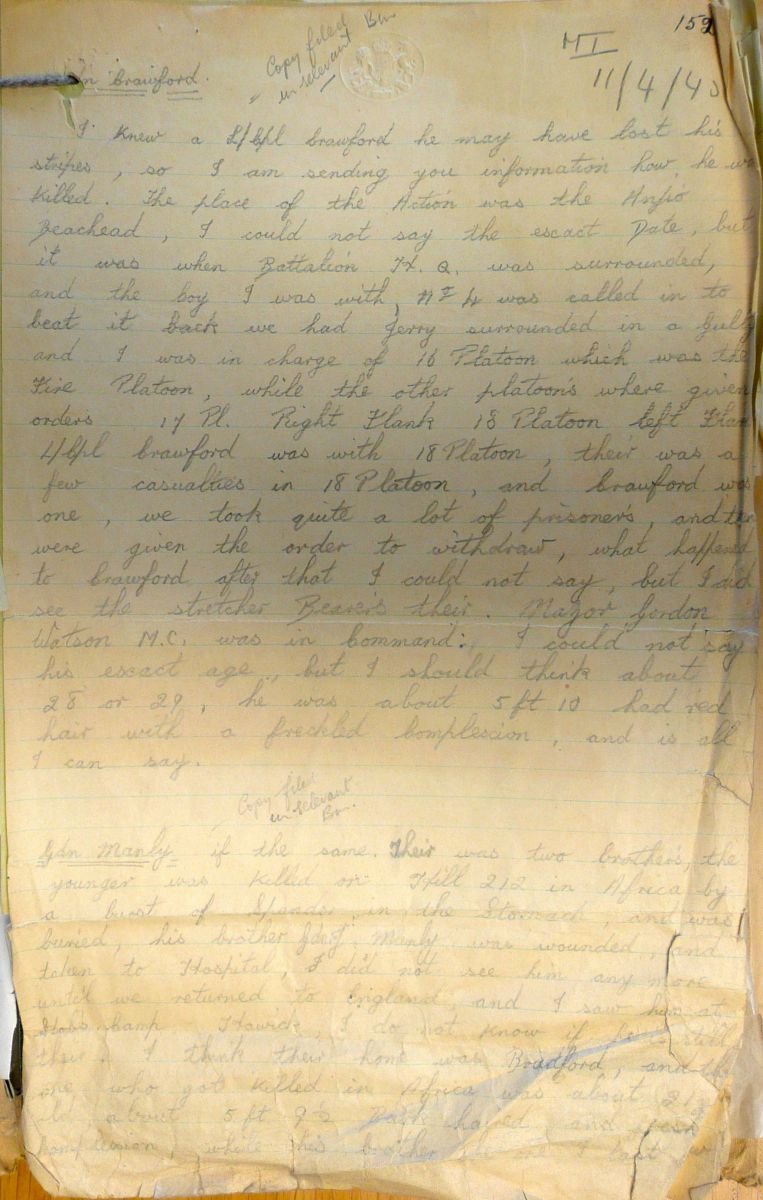 152
Copy filed
in relevant Bn.
MI
11/4/45
Gdn Crawford.
I knew a L/Cpl Crawford he may have lost his
stripes, so I am sending you information how he was
killed. The place of the Action was the Anzio
Beachead, I could not say the escact Date, but
it was when Battalion H.Q. was surrounded,
and the Coy I was with, No 4 was called in to
beat it back we had Jerry surrounded in a Gully
and I was in charge of 16 Platoon which was the
Fire Platoon, while the other platoon's where given
orders 17 Pl. Right Flank 18 Platoon left Flank
L/Cpl Crawford was with 18 Platoon, their was a
few casualties in 18 Platoon, and Crawford was
one, we took quite a lot of prisoner's, and
were given the order to withdraw, what happened
to Crawford after that I could not say, but I did
see the stretcher Bearer's their. Major Gordon
Watson M.C. was in Command. I could not say
his escact age, but I should think about
28 or 29, he was about 5 ft 10 had red
hair with a freckled Complexion, and is all
I can say.
Copy filed
in relevant
Bn.
Gdn Manly if the same. Their was two brother's, the
younger was killed on Hill 212 in Africa by
a burst of Spandar, in the Stomach, and was
buried, his brother Manly was wounded, and
taken to Hospital, I did not see him any more
until we returned to England, and I saw him at
Stobs Camp Hawick, I do not know if he is still
their. I think their home was Bradford, and the
one who got killed in Africa was about 21
old about 5 ft 9½ Dark haired and
Complexion, while his brother the one I last